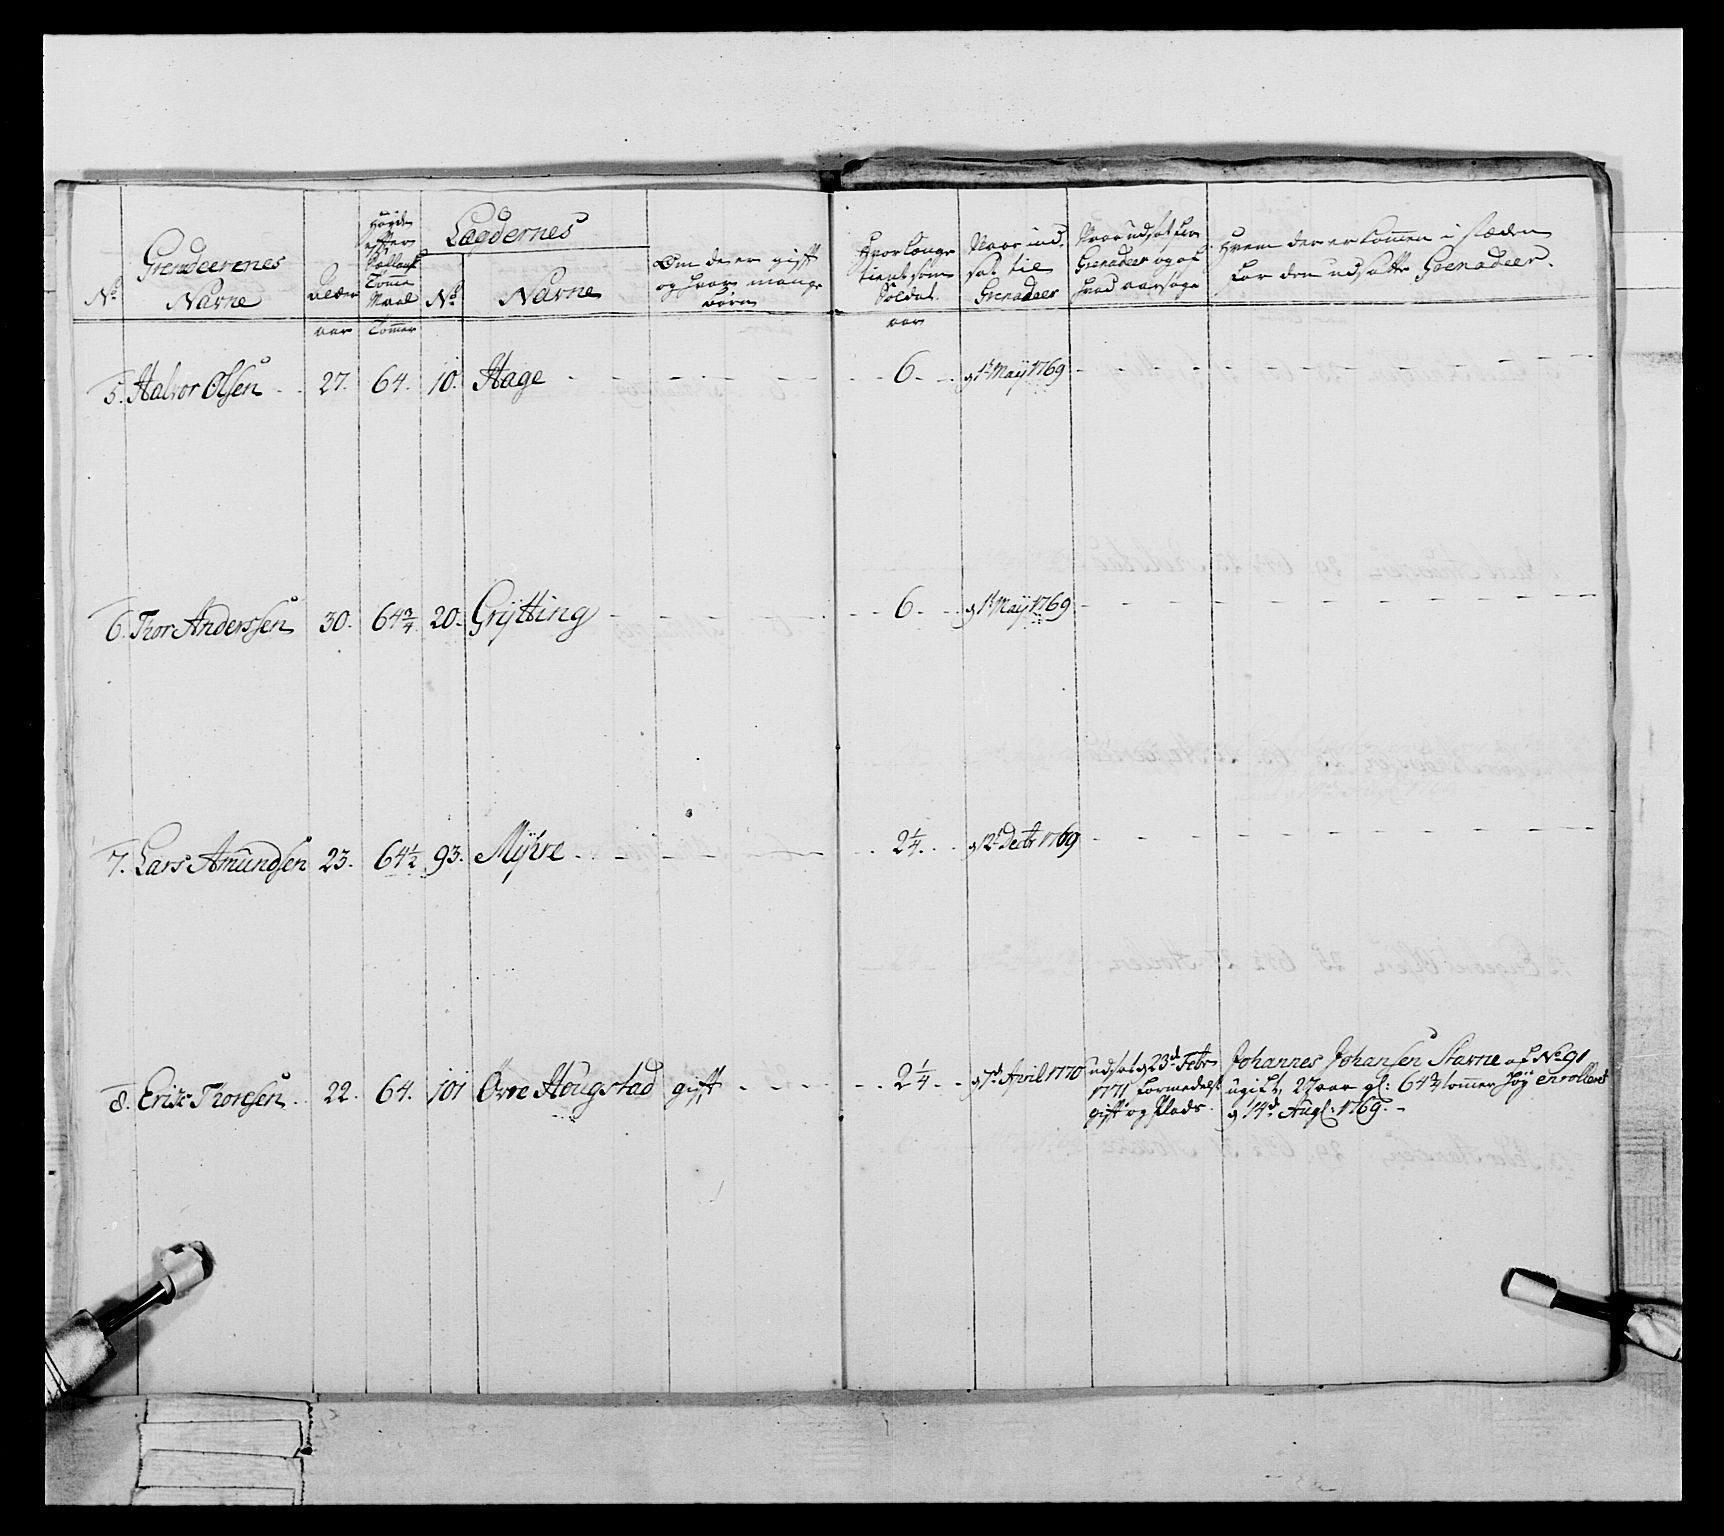 No Grenadeerenes Navne
Alder
Høyde efter Holland Tomme Maal
Lægdernes
No Navne
Om de er gift og hvor mange børn
Hvor længe tient som Soldat.
Naar indsat til Grenadeer
Naar udsat for Grenadeer og af hvad aarsage
Hvem der er kommen i stæden for den udsatte Grenadeer.
aar Tommer aar
5. Halvor Olsen 27. 64. 10. Hage 6. 1t May 1769
6. Thor Anderssen 30. 64 3/4 20. Grÿtting 6. 1t Maÿ 1769
7. Lars Amundsen 23. 64 1/2 93. Mÿhre 2 1/4. 12t Decbr 1769
8. Erik Thoresen 22. 64. 101 Øvre Hougstad gift 2 1/4 7d April 1770
udsat d 23d Febr 1771 formedelst gift og Plads.
Johannes Johansen Starne af No 91
ugift, 27 aar gl: 64 3/4 tommer høy enrollert
d 14d Augl: 1769.